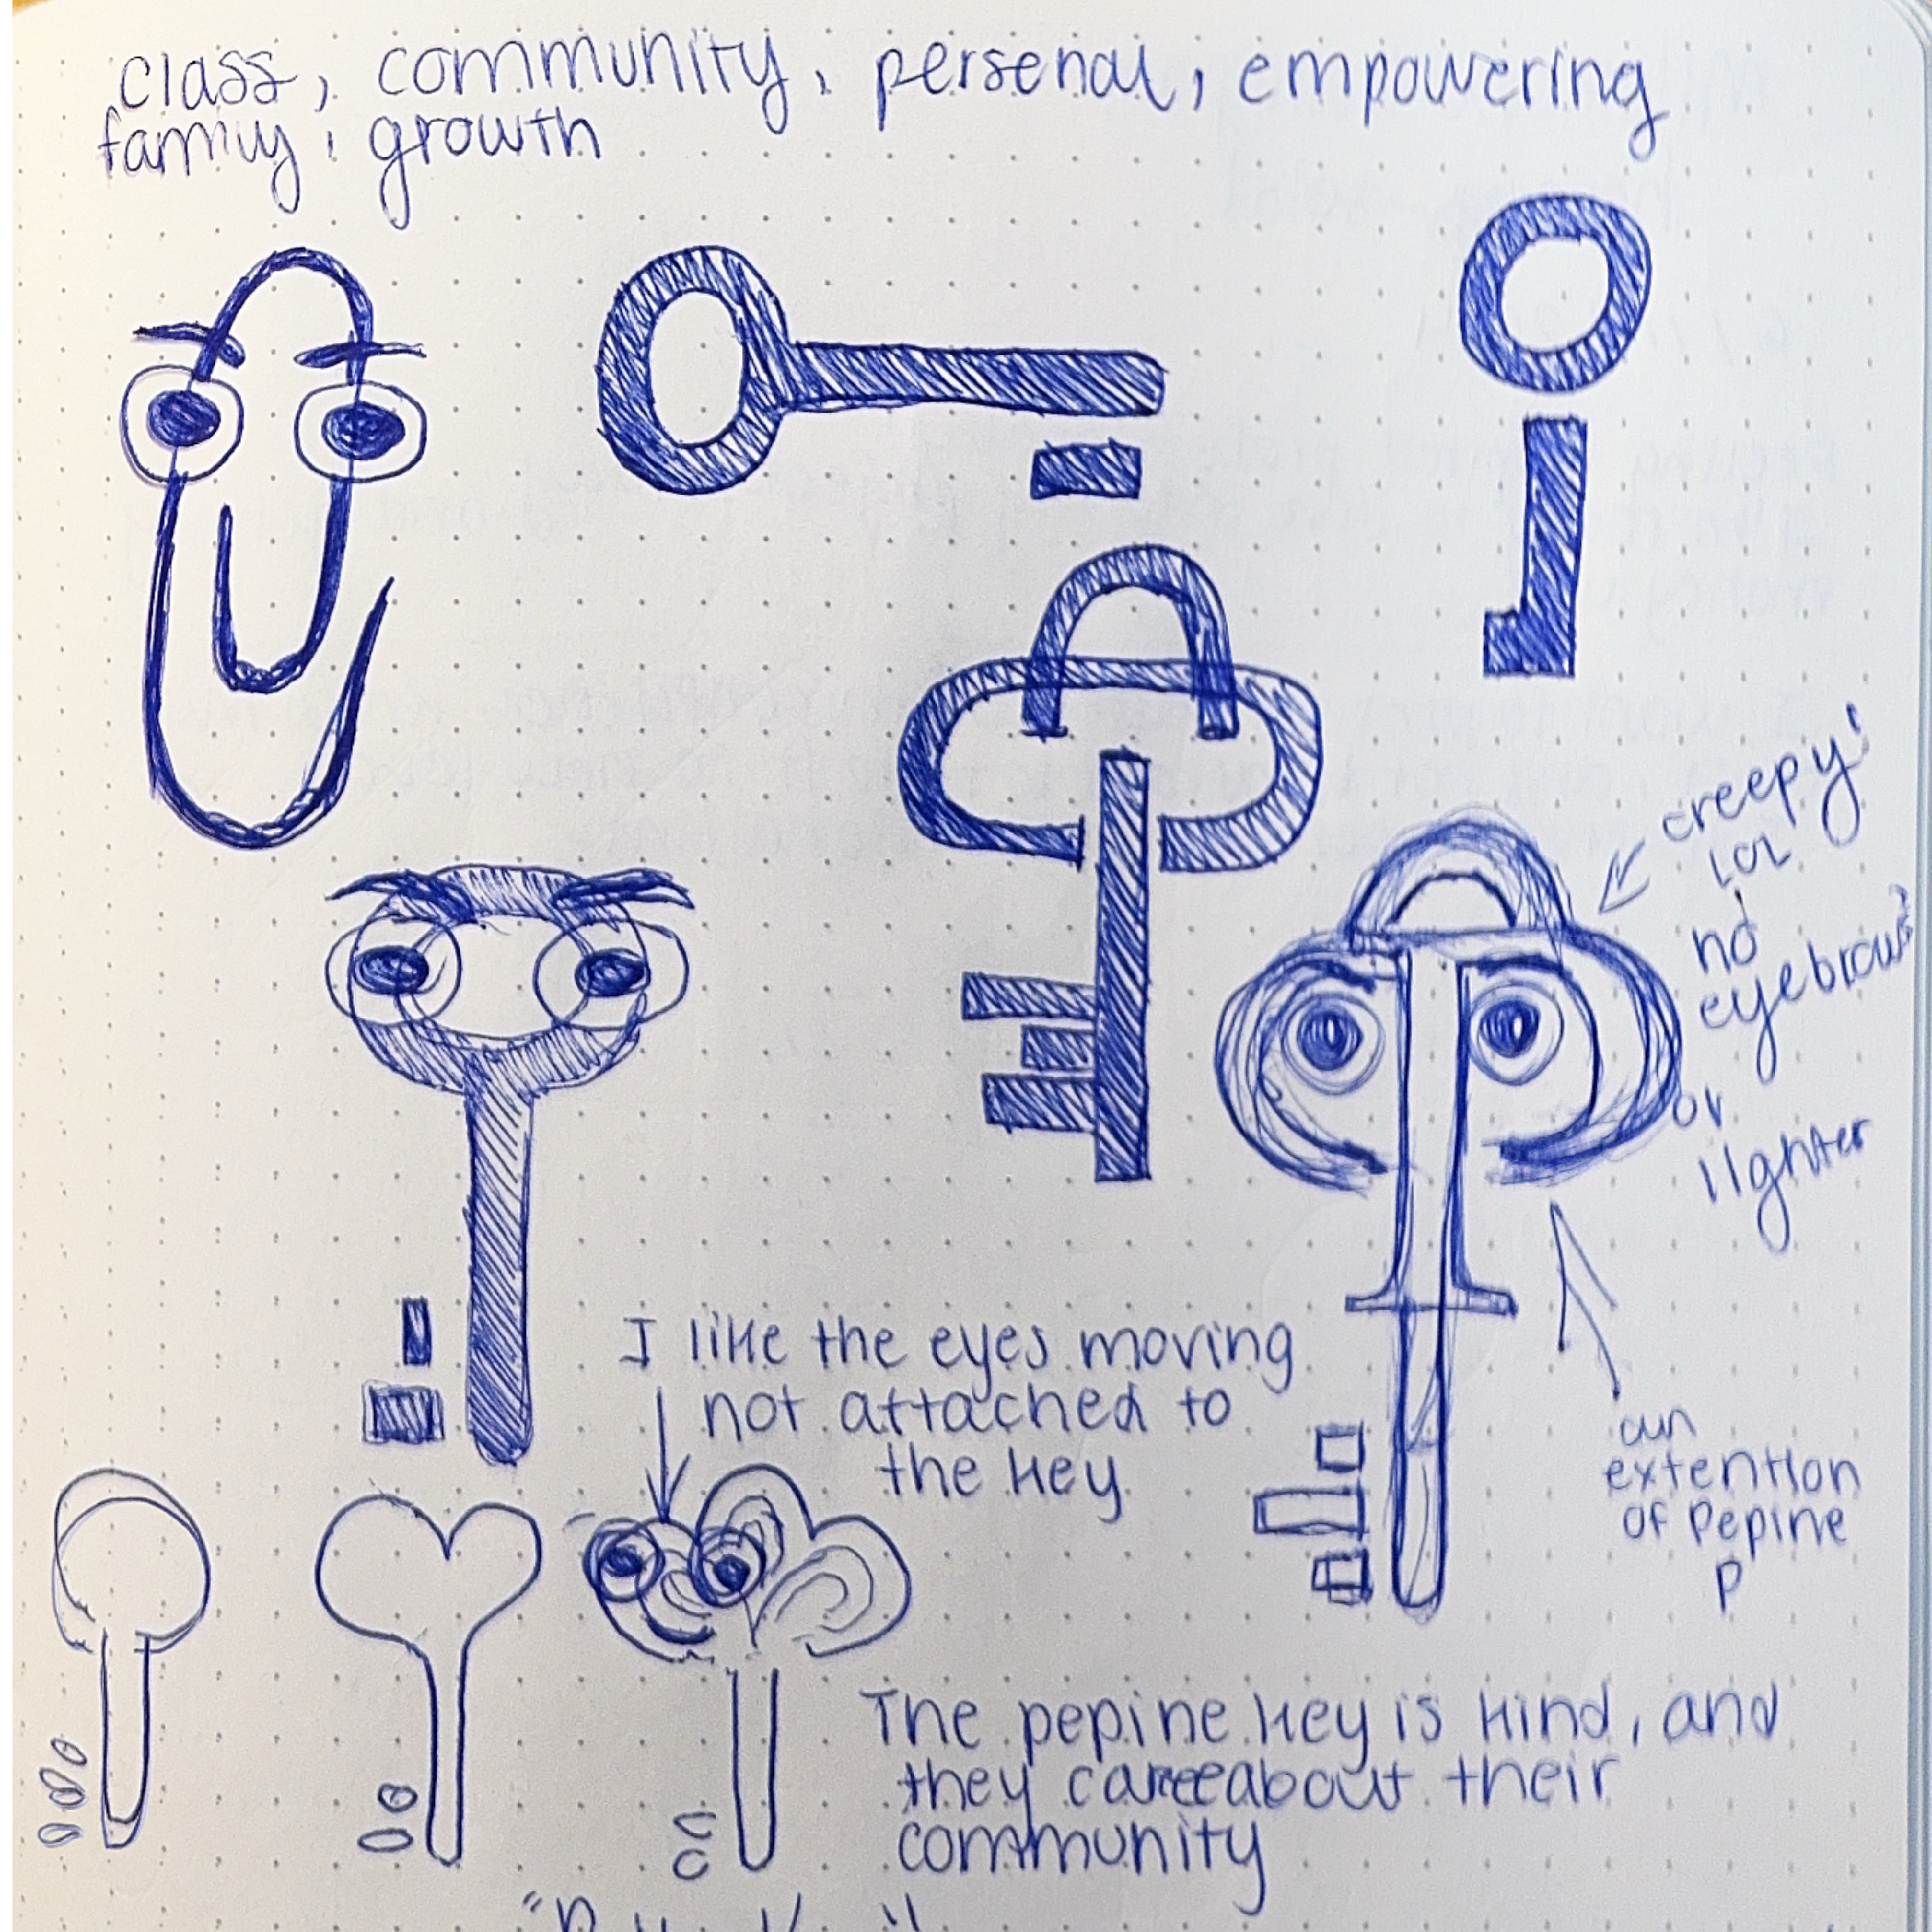 class, community, personal, empowering
family, growth
creepy!
lol
no
eyebrows
or
lighter
I like the eyes moving
not attached to
the key
an
extention
of Pepine
P
The pepine key is kind, and
they care about their
community